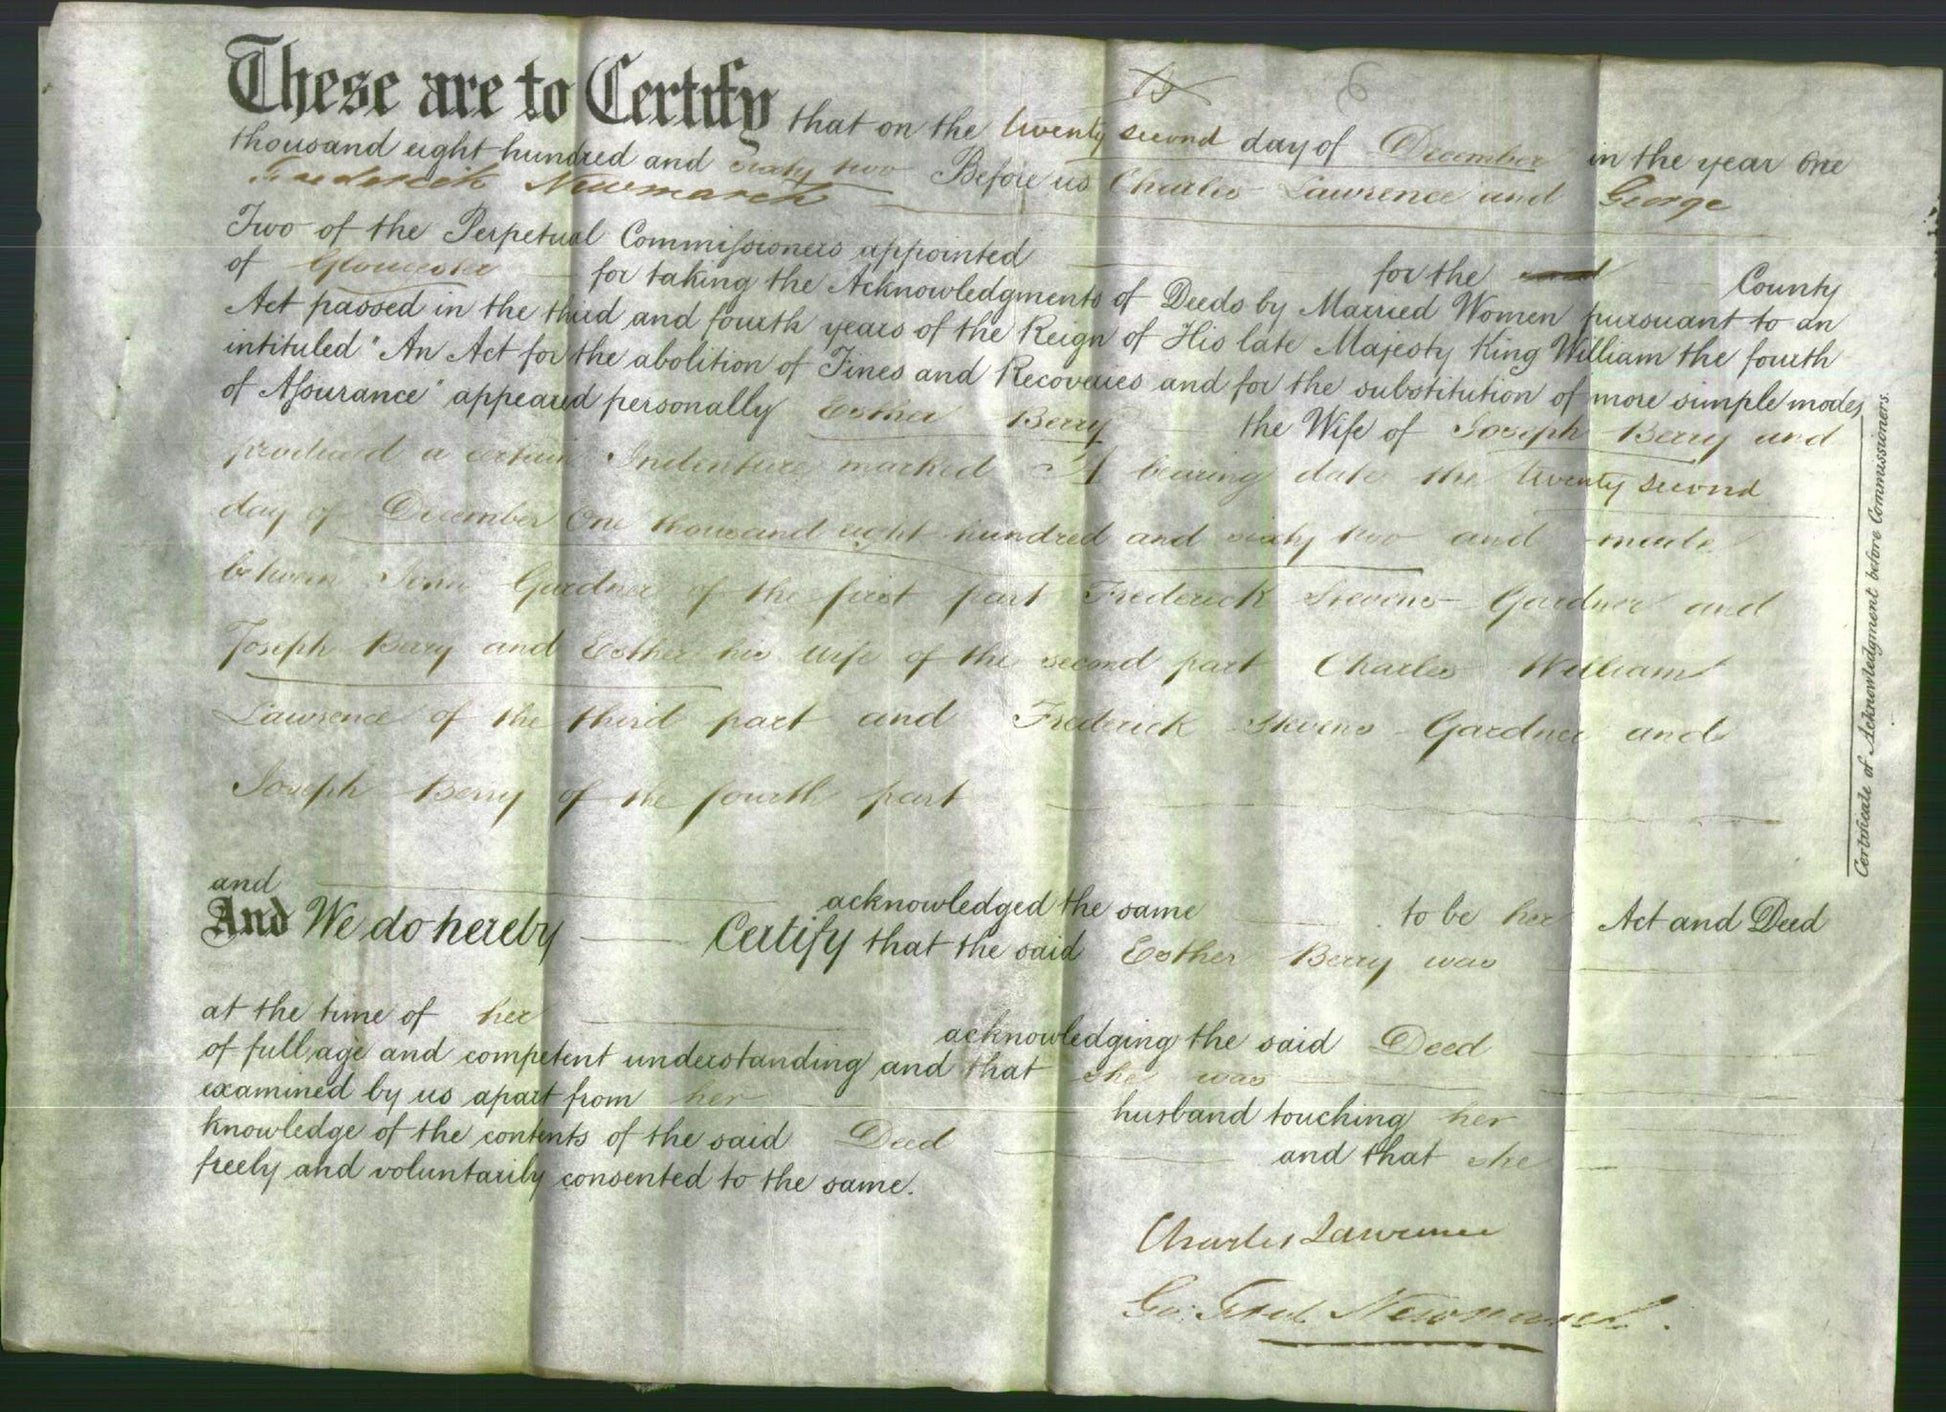 These are to Certify that on the twenty second day of December in the year One
thousand eight hundred and sixty two Before us Charles Lawrence and George
Frederick Newmarch
Two of the Perpetual Commissioners appointed for the County
of Gloucester for taking the Acknowledgments of Deeds by Married Women pursuant to an
Act passed in the third and fourth years of the Reign of His late Majesty King William the fourth
intituled "An Act for the abolition of Fines and Recoveries and for the substitution of more simple modes
of Assurance" appeared personally Esther Berry the Wife of Joseph Berry and
produced a certain Indenture marked A bearing date the twenty second
day of December One thousand eight hundred and sixty two and made
between John Gardner of the first part Frederick Stevens Gardner and
Joseph Berry and Esther his wife of the second part Charles William
Lawrence of the third part and Frederick Stevens Gardner and
Joseph Berry of the fourth part
and acknowledged the same to be her Act and Deed
And We do hereby Certify that the said Esther Berry was
at the time of her acknowledging the said Deed
of full age and competent understanding and that she was
examined by us apart from her husband touching her
knowledge of the contents of the said Deed and that she
freely and voluntarily consented to the same.
Charles Lawrence
Geo: Fred. Newmarch.
Certificate of Acknowledgment before Commissioners.
6